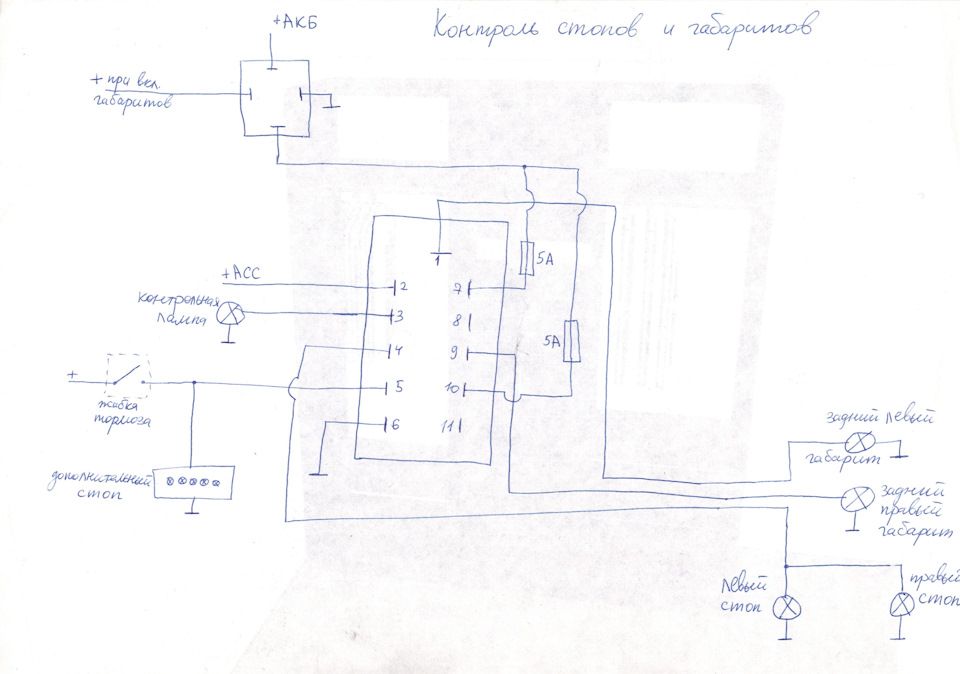 Контроль стопов и габаритов
+АКБ
+ при вкл.
габаритов
1
5А
+АСС
2
7
контрольная
лампа
3
8
5А
4
9
+
5
10
жабка
тормоза
6
11
задний левый
габарит
дополнительный
стоп
задний
правый
габарит
левый
стоп
правый
стоп